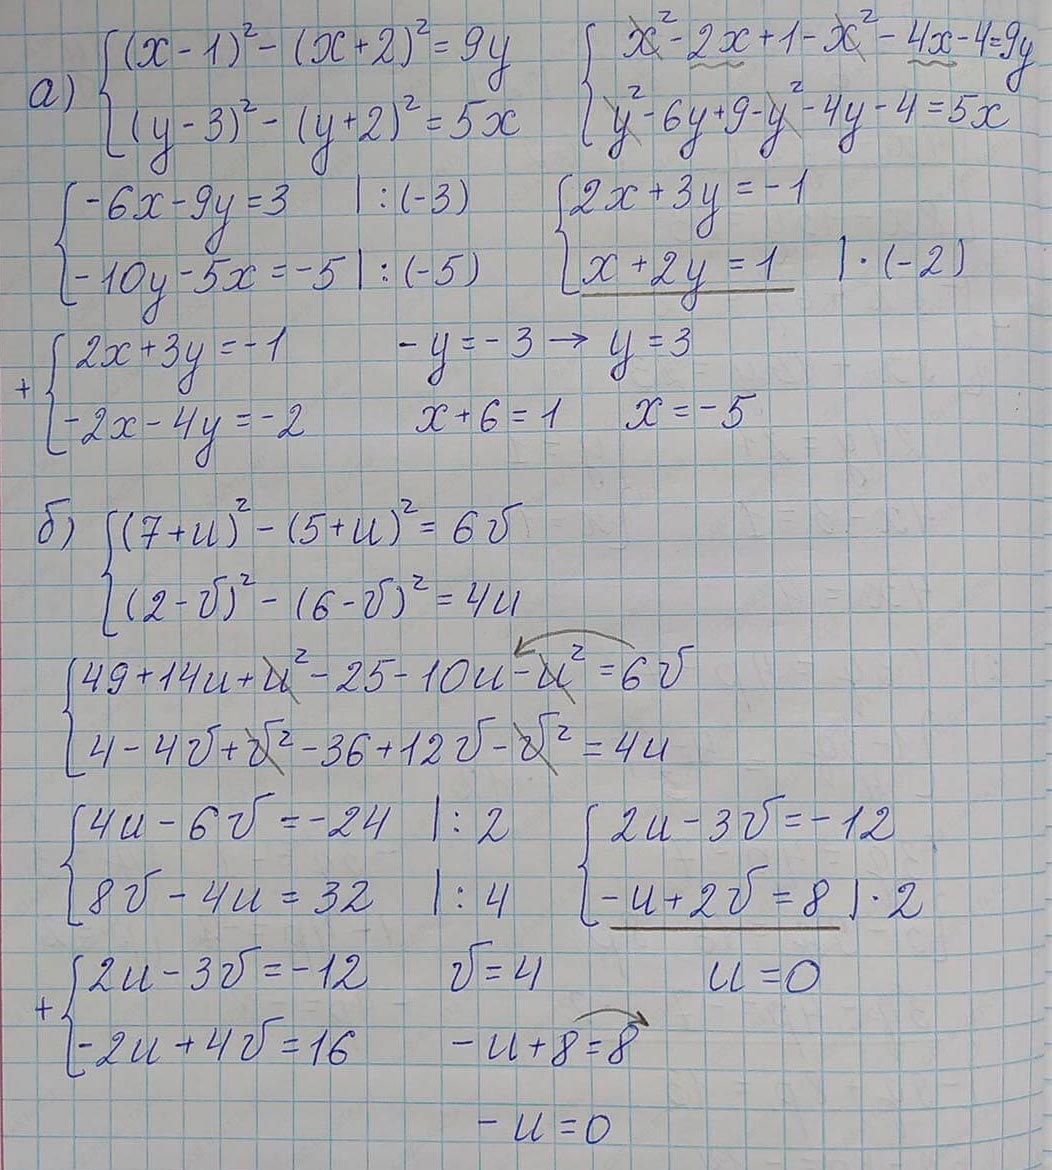 а) (x - 1)² - (x + 2)² = 9y
(y - 3)² - (y + 2)² = 5x
x² - 2x + 1 - x² - 4x - 4 = 9y
y² - 6y + 9 - y² - 4y - 4 = 5x
-6x - 9y = 3 | : (-3)
-10y - 5x = -5 | : (-5)
2x + 3y = -1
x + 2y = 1 | · (-2)
+ 2x + 3y = -1
-2x - 4y = -2
-y = -3 → y = 3
x + 6 = 1 x = -5
б) (7 + u)² - (5 + u)² = 6v
(2 - v)² - (6 - v)² = 4u
49 + 14u + u² - 25 - 10u - u² = 6v
4 - 4v + v² - 36 + 12v - v² = 4u
4u - 6v = -24 | : 2
8v - 4u = 32 | : 4
2u - 3v = -12
-u + 2v = 8 | · 2
+ 2u - 3v = -12
-2u + 4v = 16
v = 4
-u + 8 = 8
-u = 0
u = 0